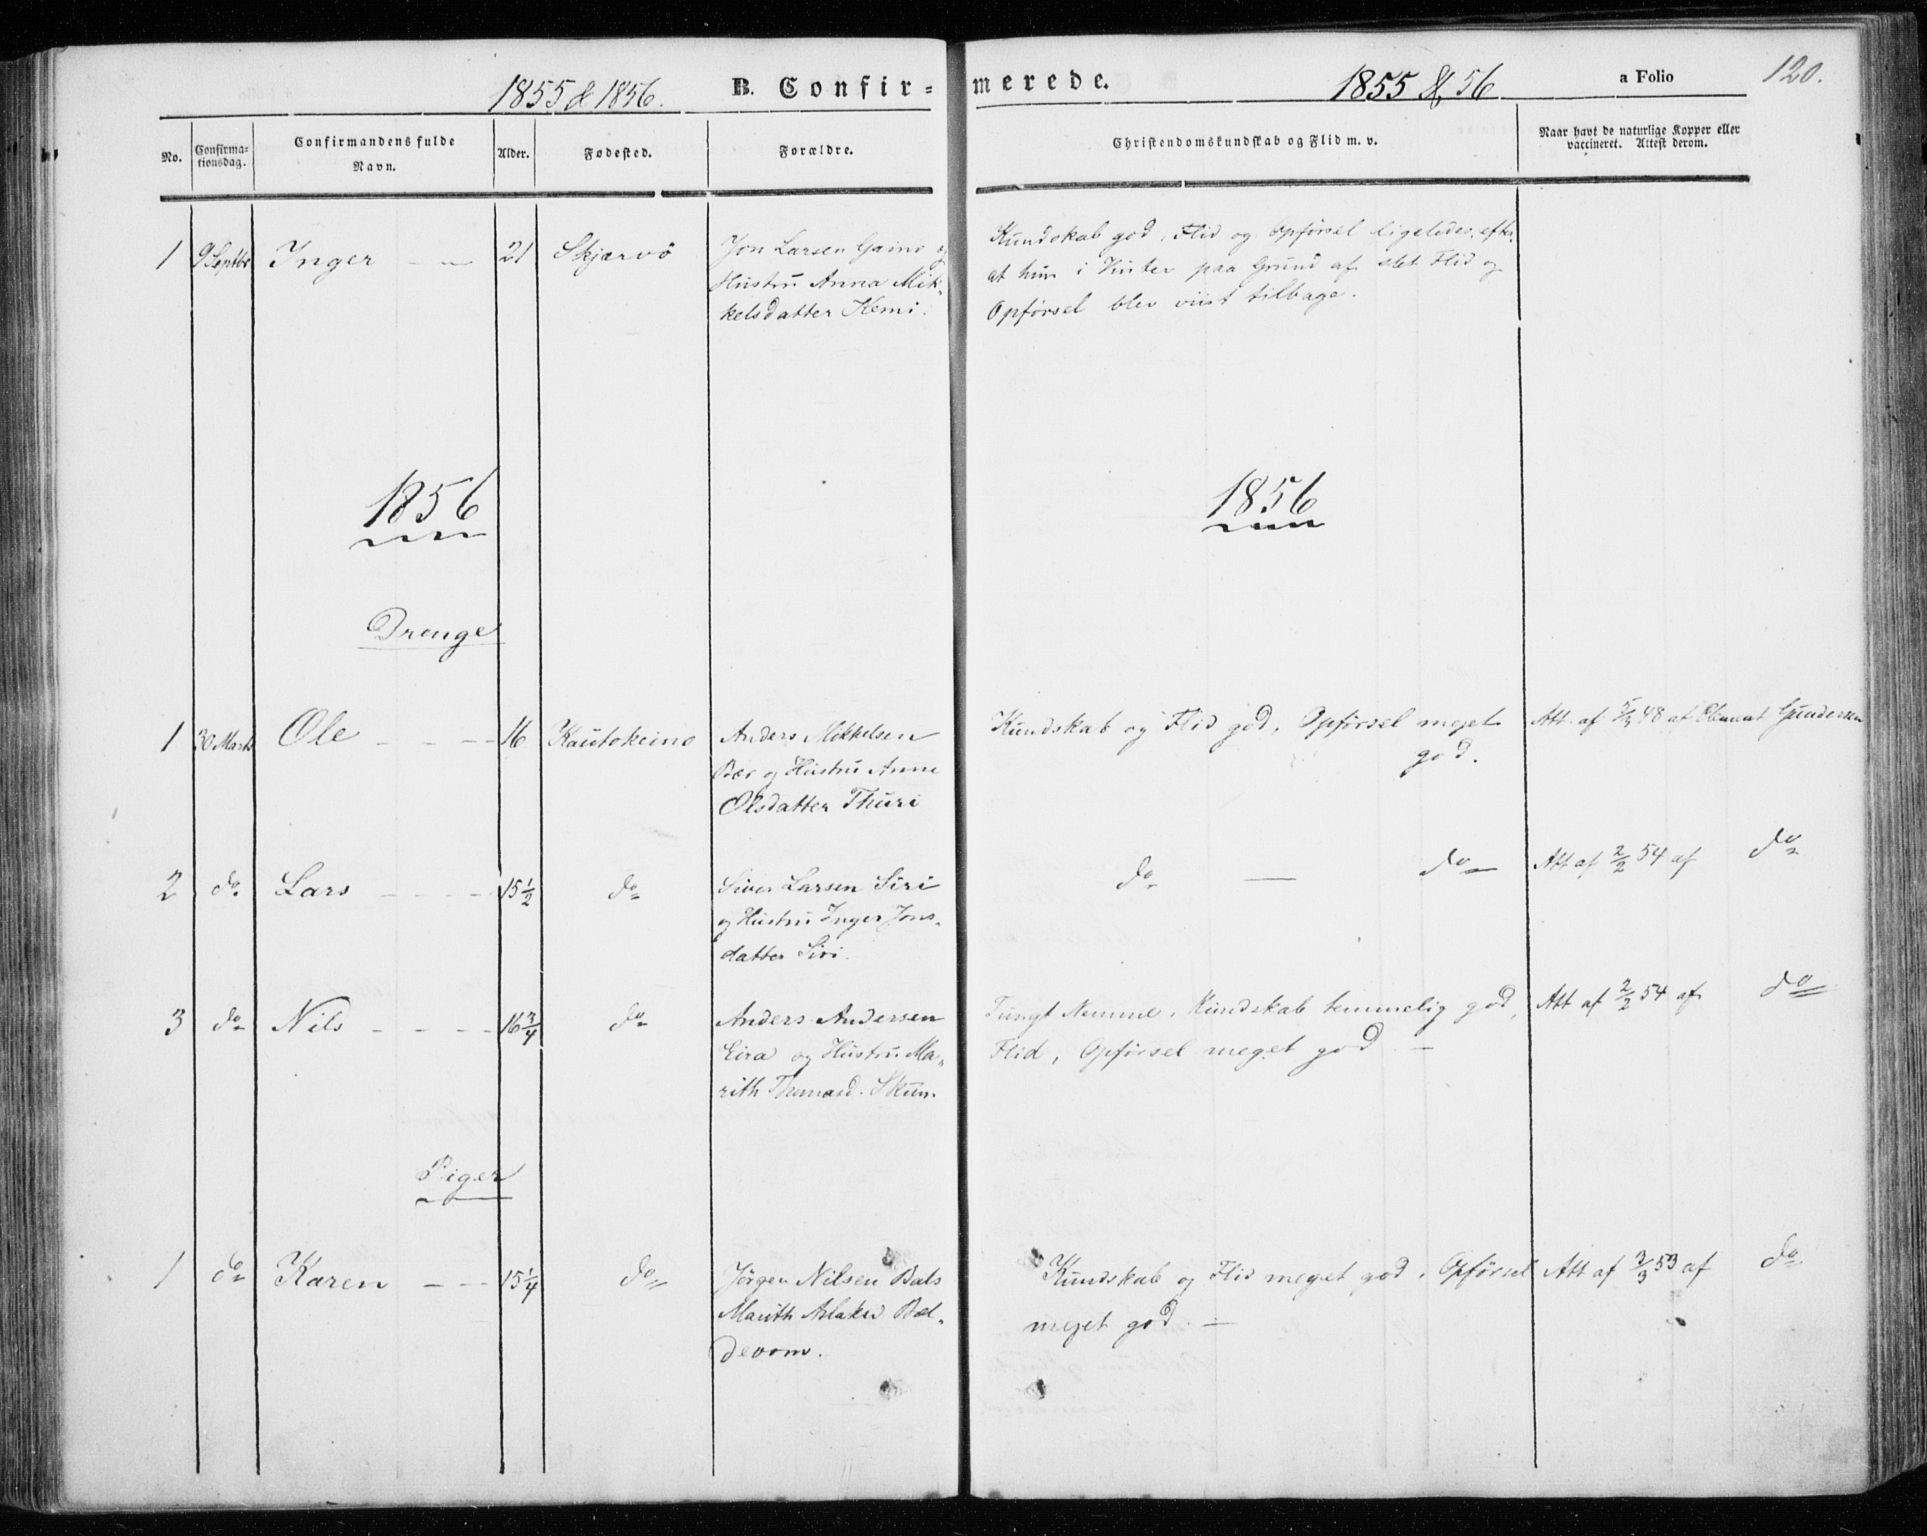 1855 & 1856. B. Confir- merede. 1855 & 56 a Folio 120.
No. Confirma-tionsdag. Confirmandens fulde Navn. Alder. Fødested. Forældre. Christendomskundskab og Flid m. v. Naar havt de naturlige Kopper eller vaccineret. Attest derom.
1 9 Septbr Inger 21 Skjærvö Jon Larsen Gaino og
Hustru Anna Mik-
kelsdatter Kemi.
Kundskab god, Flid og Opförsel ligeledes, efter
at hun i Vinter paa Grund af slet Flid og
Opförsel blev viist tilbage.
1856 1856
Drenge
1 30 Marts Ole 16 Kautokeino Anders Mikkelsen
Bær og Hustru Anne
Olsdatter Thuri
Kundskab og Flid god, Opförsel meget
god.
Att. af 5/3 48 af Clement Gundersen
2 do Lars 15 1/2 do Siver Larsen Siri
og Hustru Inger Jons-
datter Siri.
do — do Att af 2/2 54 af do
3 do Nils 16 3/4 do Anders Andersen
Eira og Hustru Ma-
rith Thomasd. Skum.
Tungt Nemme, Kundskab temmelig god,
Flid, Opförsel meget god —
Att af 2/2 54 af do
Piger
1 do Karen 15 1/4 do Jörgen Nilsen Bals
Marith Aslaksd Bæl-
devom.
Kundskab og Flid meget god, Opförsel
meget god. —
Att af 3/3 53 af do